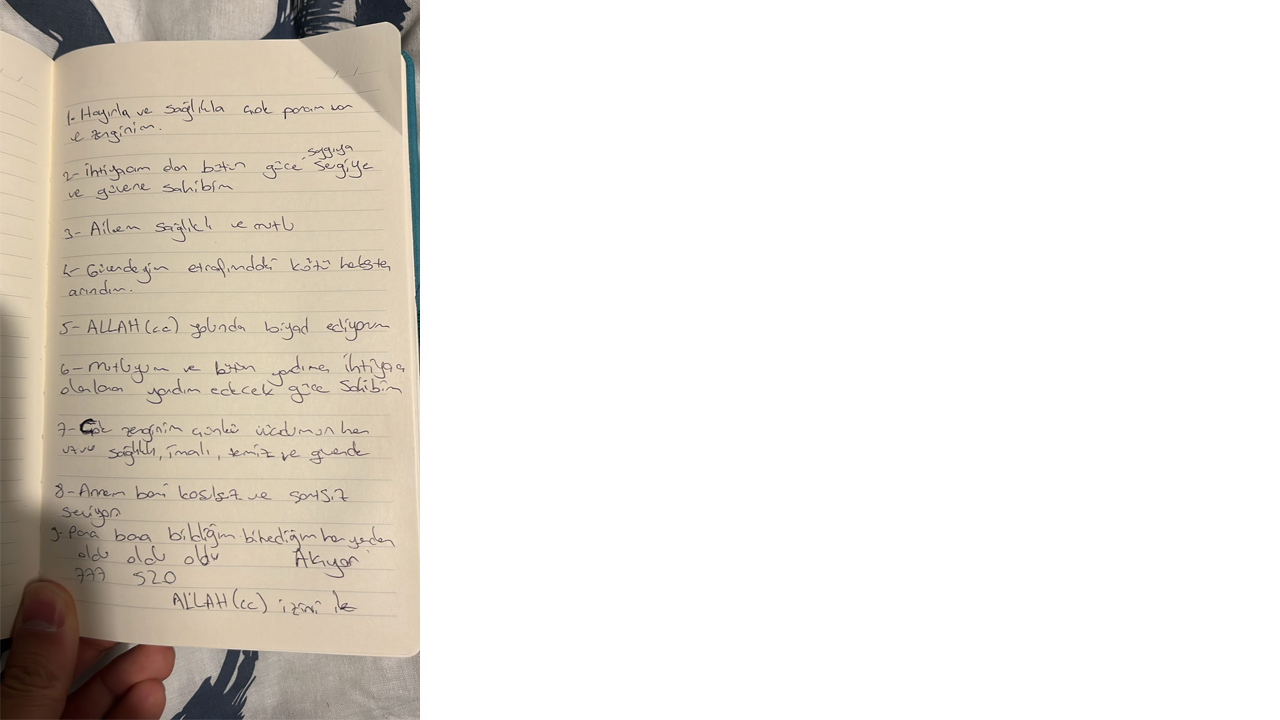 1- Hayırla ve sağlıkla çok param var
ve zenginim.
2- ihtiyacım olan bütün güce saygıya sevgiye
ve güvene sahibim
3- Ailem sağlıklı ve mutlu
4- Güvendeyim etrafımdaki kötü
arındım.
5- ALLAH (cc) yolunda ediyorum
6- mutluyum ve bütün yardıma ihtiyacı
olanlara yardım edecek güce Sahibim
7- Çok zenginim çünkü vücudumun her
uzvu sağlıklı, temiz ve güvende
8- Annem beni koşulsuz ve şartsız
seviyor
9- Para bana bildiğim bilmediğim her yerden
oldu oldu oldu Akıyor
777 520
ALLAH (cc) izini ile